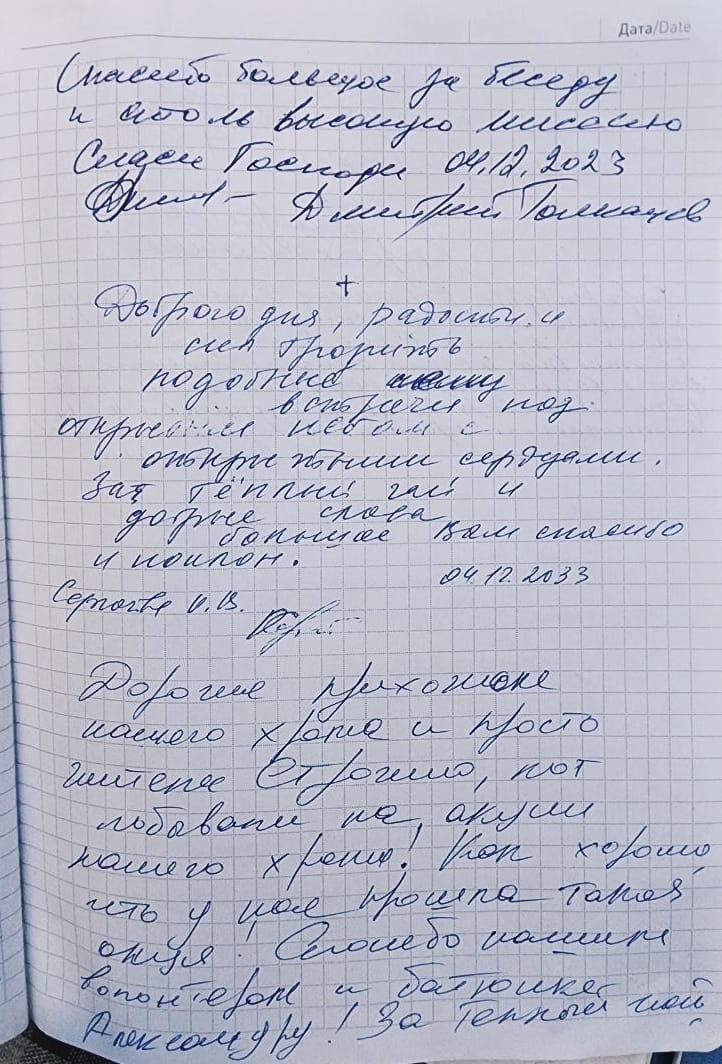 Дата/Date
Спасибо большое за беседу
и столь высокую миссию
Спаси Господи 04.12.2023
Дмитрий Толмачев
+
Доброго дня, радости и
сил
подобные
встречи под
открытым небом с
открытыми сердцами.
За тёплый чай и
добрые слова
большое Вам спасибо
и поклон.
04.12.2033
И.В.
Дорогие прихожане
нашего храма и просто
жители Строгино,
побывали на акции
нашего храма! Как хорошо,
что у нас прошла такая
акция! Спасибо нашим
волонтёрам и батюшке
Александру! За теплый чай